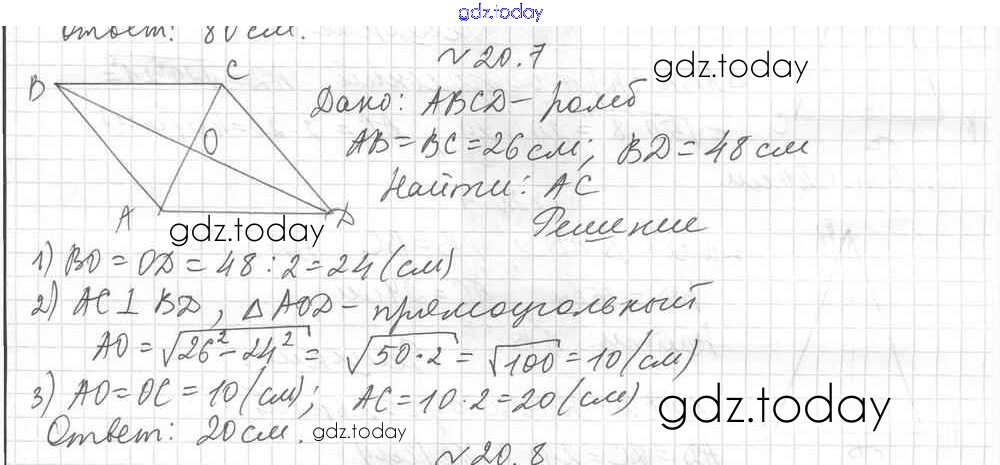 gdz.today
Ответ: 80 см.
№ 20.7
gdz.today
B C
O
A D
Дано: ABCD – ромб
AB = BC = 26 см; BD = 48 см
Найти: AC
gdz.today
Решение
1) BO = OD = 48 : 2 = 24 (см)
2) AC ⊥ BD, △ AOD – прямоугольный
AO = √26² − 24² = √50 · 2 = √100 = 10 (см)
3) AO = OC = 10 (см); AC = 10 · 2 = 20 (см)
gdz.today
Ответ: 20 см.
gdz.today
№ 20.8